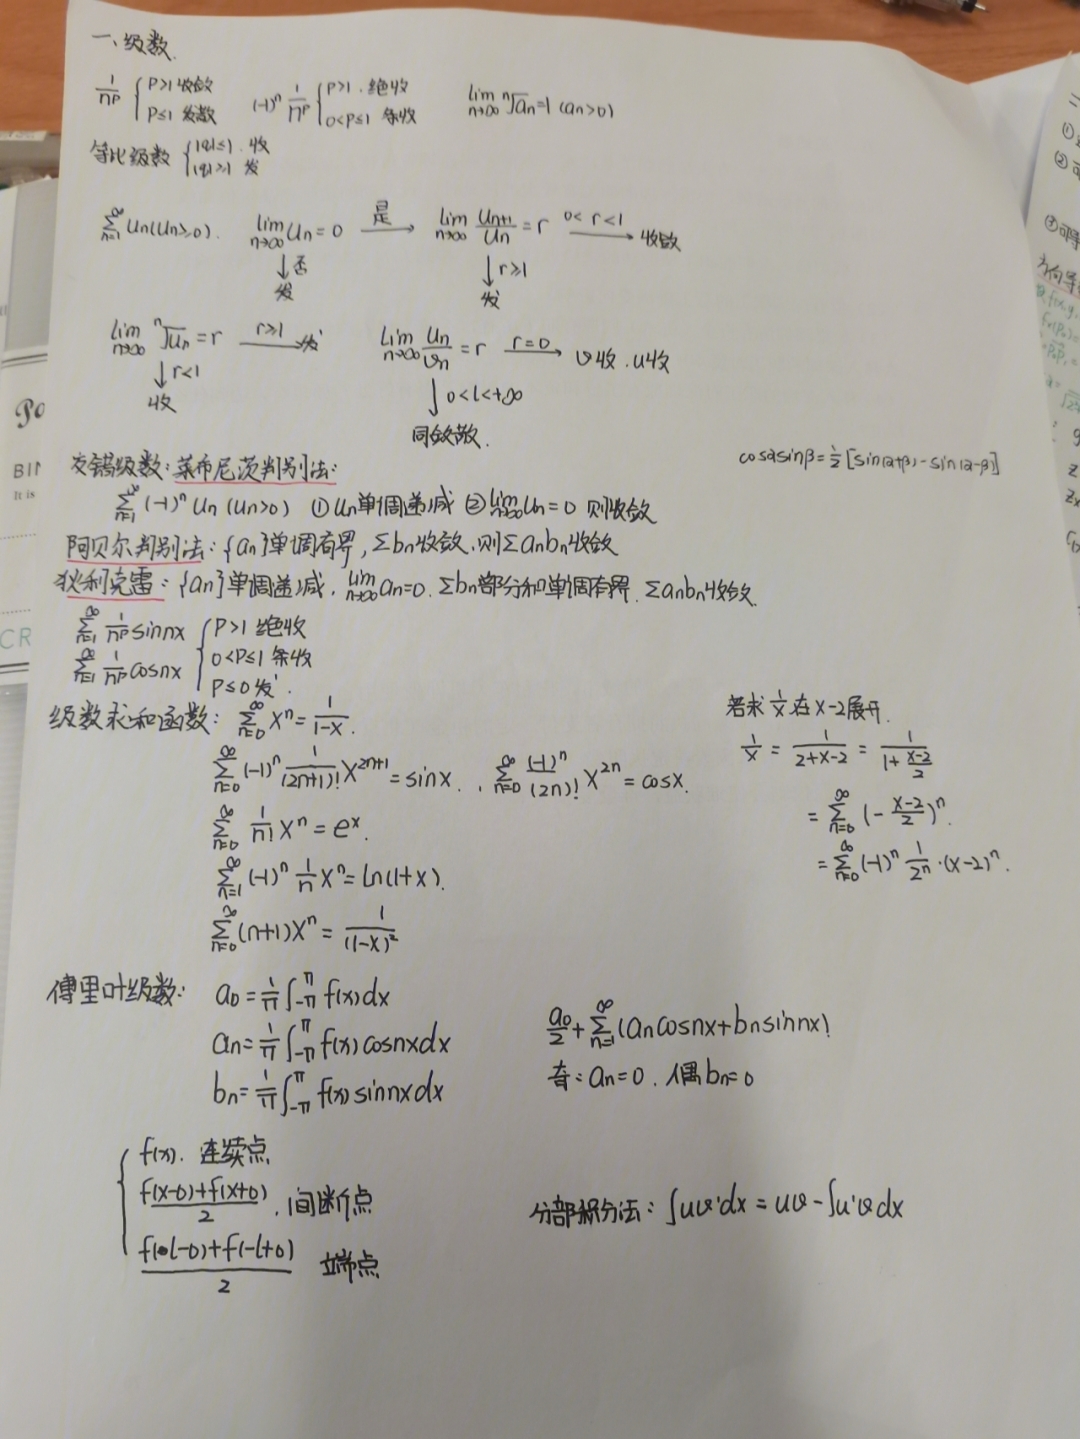 一、级数.
1/n^p { P>1 收敛
P≤1 发散
(-1)^n 1/n^p { P>1. 绝收
0<P≤1 条收
lim n→∞ ⁿ√an=1 (an>0)
等比级数 { |q|≤1. 收
|q|≥1 发
∞Σn=1 Un(Un≥0). lim n→∞ Un=0 是→ lim n→∞ Un+1/Un = r 0<r<1→ 收敛
↓否 发
↓r≥1 发
lim n→∞ ⁿ√Un = r r≥1→ 发
↓r<1 收
lim n→∞ Un/Vn = r r=0→ V收.U收
↓0<l<+∞
同敛散.
交错级数: 莱布尼茨判别法:
cosαsinβ=1/2[sin(α+β)-sin(α-β)]
∞Σn=1 (-1)^n Un (Un>0) ①Un单调递减 ②lim n→∞ Un=0 则收敛
阿贝尔判别法: {an}单调有界, Σbn收敛,则Σanbn收敛
狄利克雷: {an}单调递减, lim n→∞ an=0. Σbn部分和单调有界. Σanbn收敛.
∞Σn=1 1/n^p sinnx
∞Σn=1 1/n^p cosnx
{ P>1 绝收
0<P≤1 条收
P≤0 发.
级数求和函数: ∞Σn=0 X^n = 1/(1-X).
∞Σn=0 (-1)^n 1/(2n+1)! X^(2n+1) = sinx. , ∞Σn=0 (-1)^n/(2n)! X^(2n) = cosx.
∞Σn=0 1/n! X^n = e^x.
∞Σn=1 (-1)^n 1/n X^n = ln(1+x).
∞Σn=0 (n+1)X^n = 1/(1-X)^2
若求 1/x 在 X-2展开.
1/x = 1/(2+X-2) = 1/(1+(X-2)/2)
= ∞Σn=0 (-(X-2)/2)^n.
= ∞Σn=0 (-1)^n 1/2^n ·(X-2)^n.
傅里叶级数: a0 = 1/π ∫-π^π f(x)dx
an = 1/π ∫-π^π f(x)cosnxdx
bn = 1/π ∫-π^π f(x)sinnxdx
a0/2 + ∞Σn=1 (ancosnx+bnsinnx)
奇: an=0. 偶bn=0
{ f(x). 连续点
(f(x-0)+f(x+0))/2. 间断点
(f(l-0)+f(-l+0))/2 端点
分部积分法: ∫uv'dx = uv-∫u'vdx
BIN
It is
CR